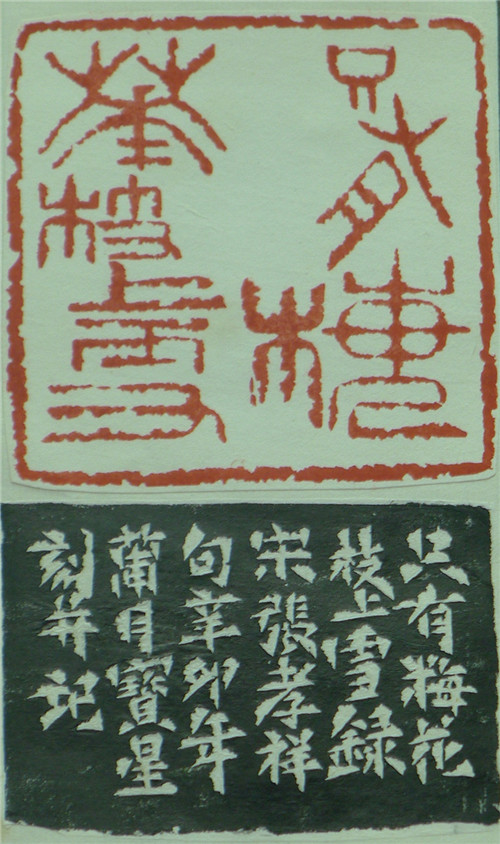 只有梅
華枝上雪
只有梅花
枝上雪錄
宋張孝祥
句辛卯年
蒲月寶星
刻并記